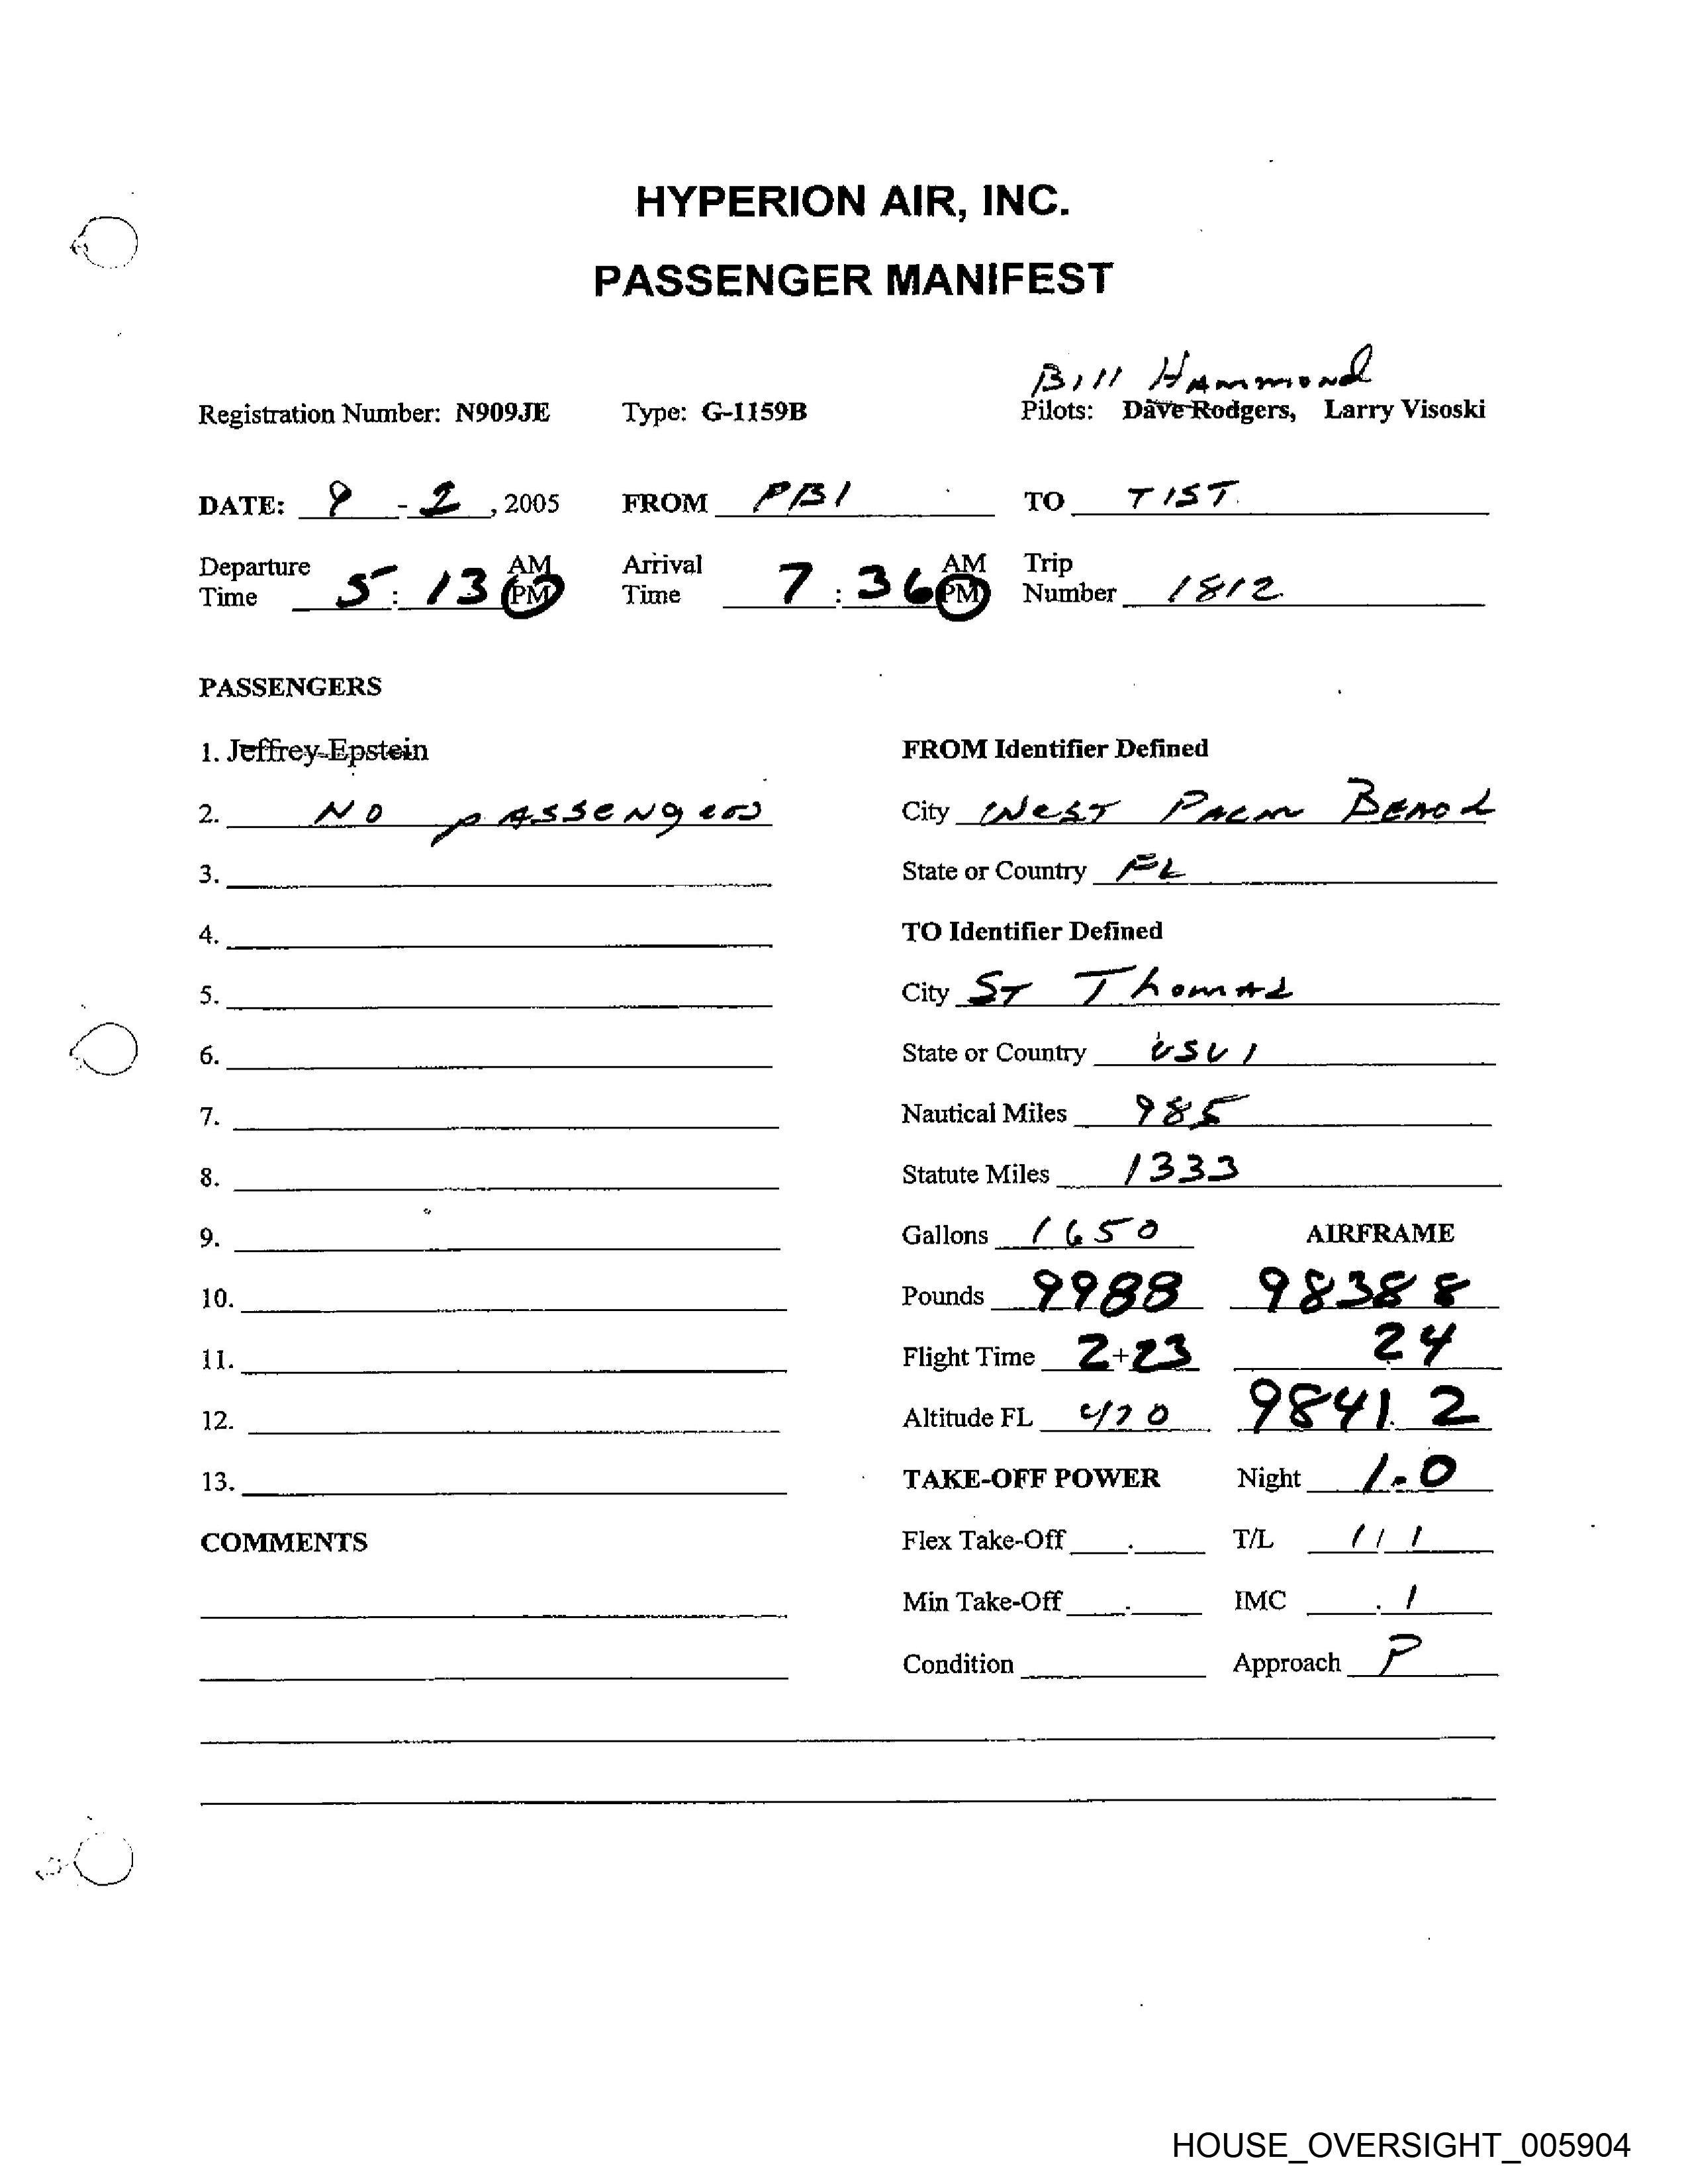 HYPERION AIR, INC.
PASSENGER MANIFEST
Bill Hammond
Registration Number: N909JE Type: G-1159B Pilots: Dave Rodgers, Larry Visoski
DATE: 9 - 2, 2005 FROM PBI TO TIST
Departure Time 5:13 AM PM Arrival Time 7:36 AM PM Trip Number 1812
PASSENGERS
1. Jeffrey Epstein FROM Identifier Defined
2. No passengers City West Palm Beach
3. State or Country FL
4. TO Identifier Defined
5. City ST Thomas
6. State or Country USVI
7. Nautical Miles 985
8. Statute Miles 1333
9. Gallons 1650 AIRFRAME
10. Pounds 9988 98388
11. Flight Time 2+23 24
12. Altitude FL 98412
13. TAKE-OFF POWER Night 1.0
COMMENTS Flex Take-Off . T/L 1/1
Min Take-Off . IMC .1
Condition Approach P
HOUSE_OVERSIGHT_005904